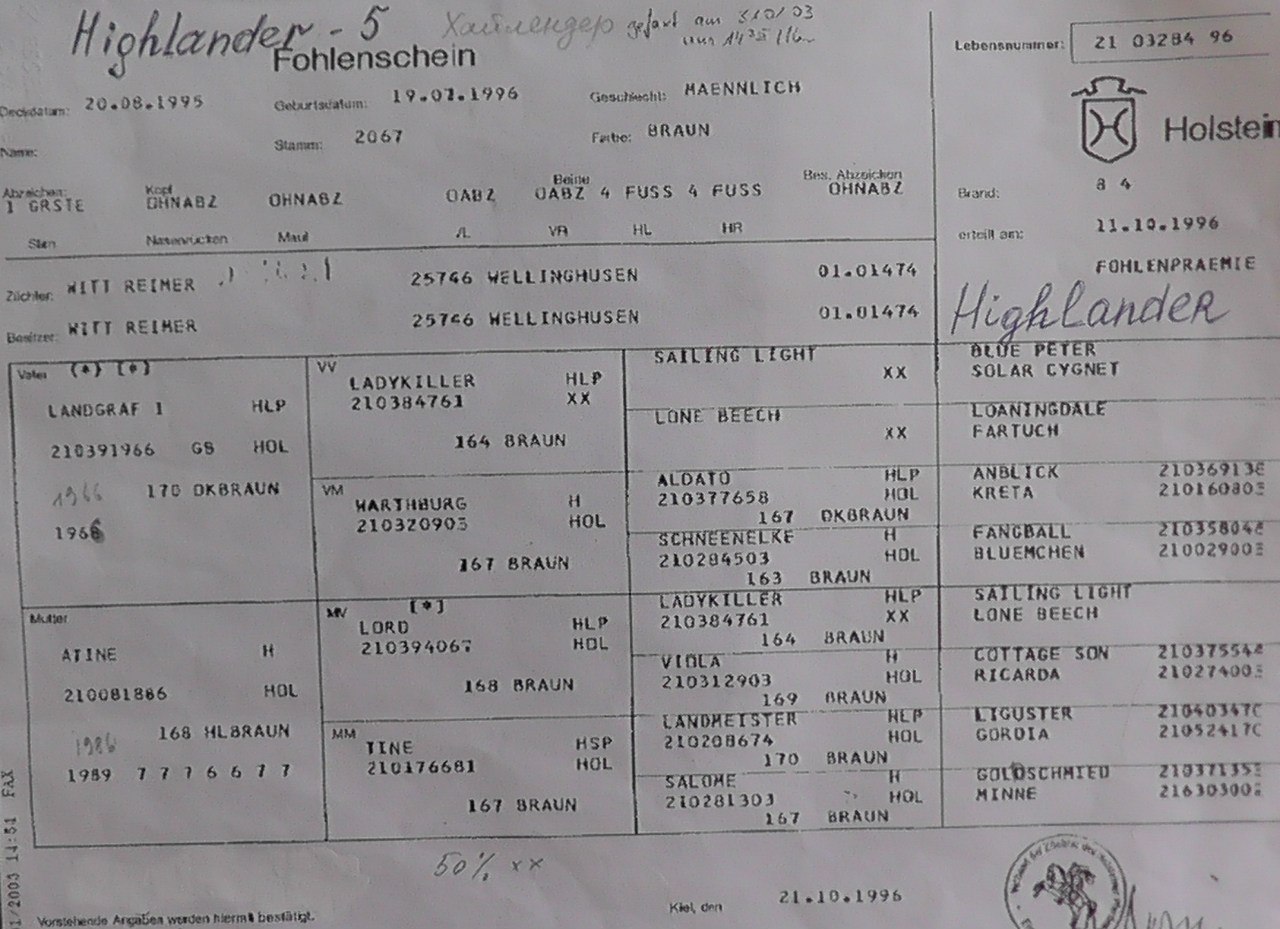 Highlander - 5 Хайлендер gefaxt am
Fohlenschein
Lebensnummer: 21 03284 96
Deckdatum: 20.08.1995 Geburtsdatum: 19.07.1996 Geschlecht: MAENNLICH
Holstein
Name: Stamm: 2067 Farbe: BRAUN
Abzeichen: Kopf Beine Bes. Abzeichen
1 GRSTE OHNABZ OHNABZ OABZ OABZ 4 FUSS 4 FUSS OHNABZ
Brand: 8 4
Stirn Nasenrücken Maul VL VR HL HR
erteilt am: 11.10.1996
Züchter: WITT REIMER 25746 WELLINGHUSEN 01.01474
FOHLENPRAEMIE
Besitzer: WITT REIMER 25746 WELLINGHUSEN 01.01474
Highlander
Vater (*) (*)
LANDGRAF 1 HLP
210391966 GS HOL
1966 170 DKBRAUN
1966
VV
LADYKILLER HLP
210384761 XX
164 BRAUN
VM
WARTHBURG H
210320903 HOL
167 BRAUN
SAILING LIGHT
XX
LONE BEECH
XX
ALDATO HLP
210377658 HOL
167 DKBRAUN
SCHNEENELKE H
210284503 HOL
163 BRAUN
BLUE PETER
SOLAR CYGNET
LOANINGDALE
FARTUCH
ANBLICK
KRETA
FANGBALL
BLUEMCHEN
Mutter
ATINE H
210081886 HOL
168 HLBRAUN
1986
1989 7 7 7 6 6 7 7
MV (*)
LORD HLP
210394067 HOL
168 BRAUN
MM
TINE HSP
210176681 HOL
167 BRAUN
LADYKILLER HLP
210384761 XX
164 BRAUN
VIOLA H
210312903 HOL
169 BRAUN
LANDMEISTER HLP
210208674 HOL
170 BRAUN
SALOME H
210281303 HOL
167 BRAUN
SAILING LIGHT
LONE BEECH
COTTAGE SON
RICARDA
LIGUSTER
GORDIA
GOLDSCHMIED
MINNE
50% xx
Kiel, den 21.10.1996
Vorstehende Angaben werden hiermit bestätigt.
1/2003 14:51 FAX